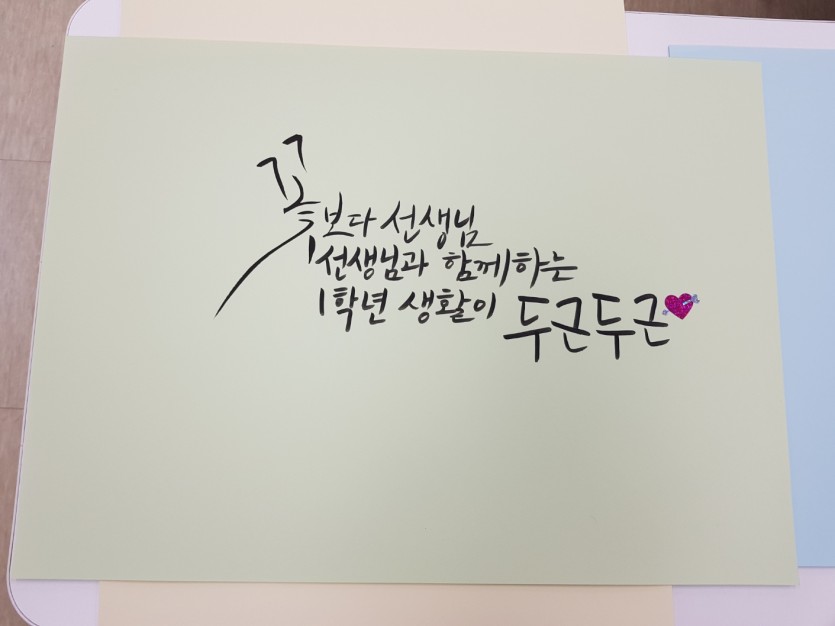 꽃보다 선생님
선생님과 함께하는
1학년 생활이 두근두근